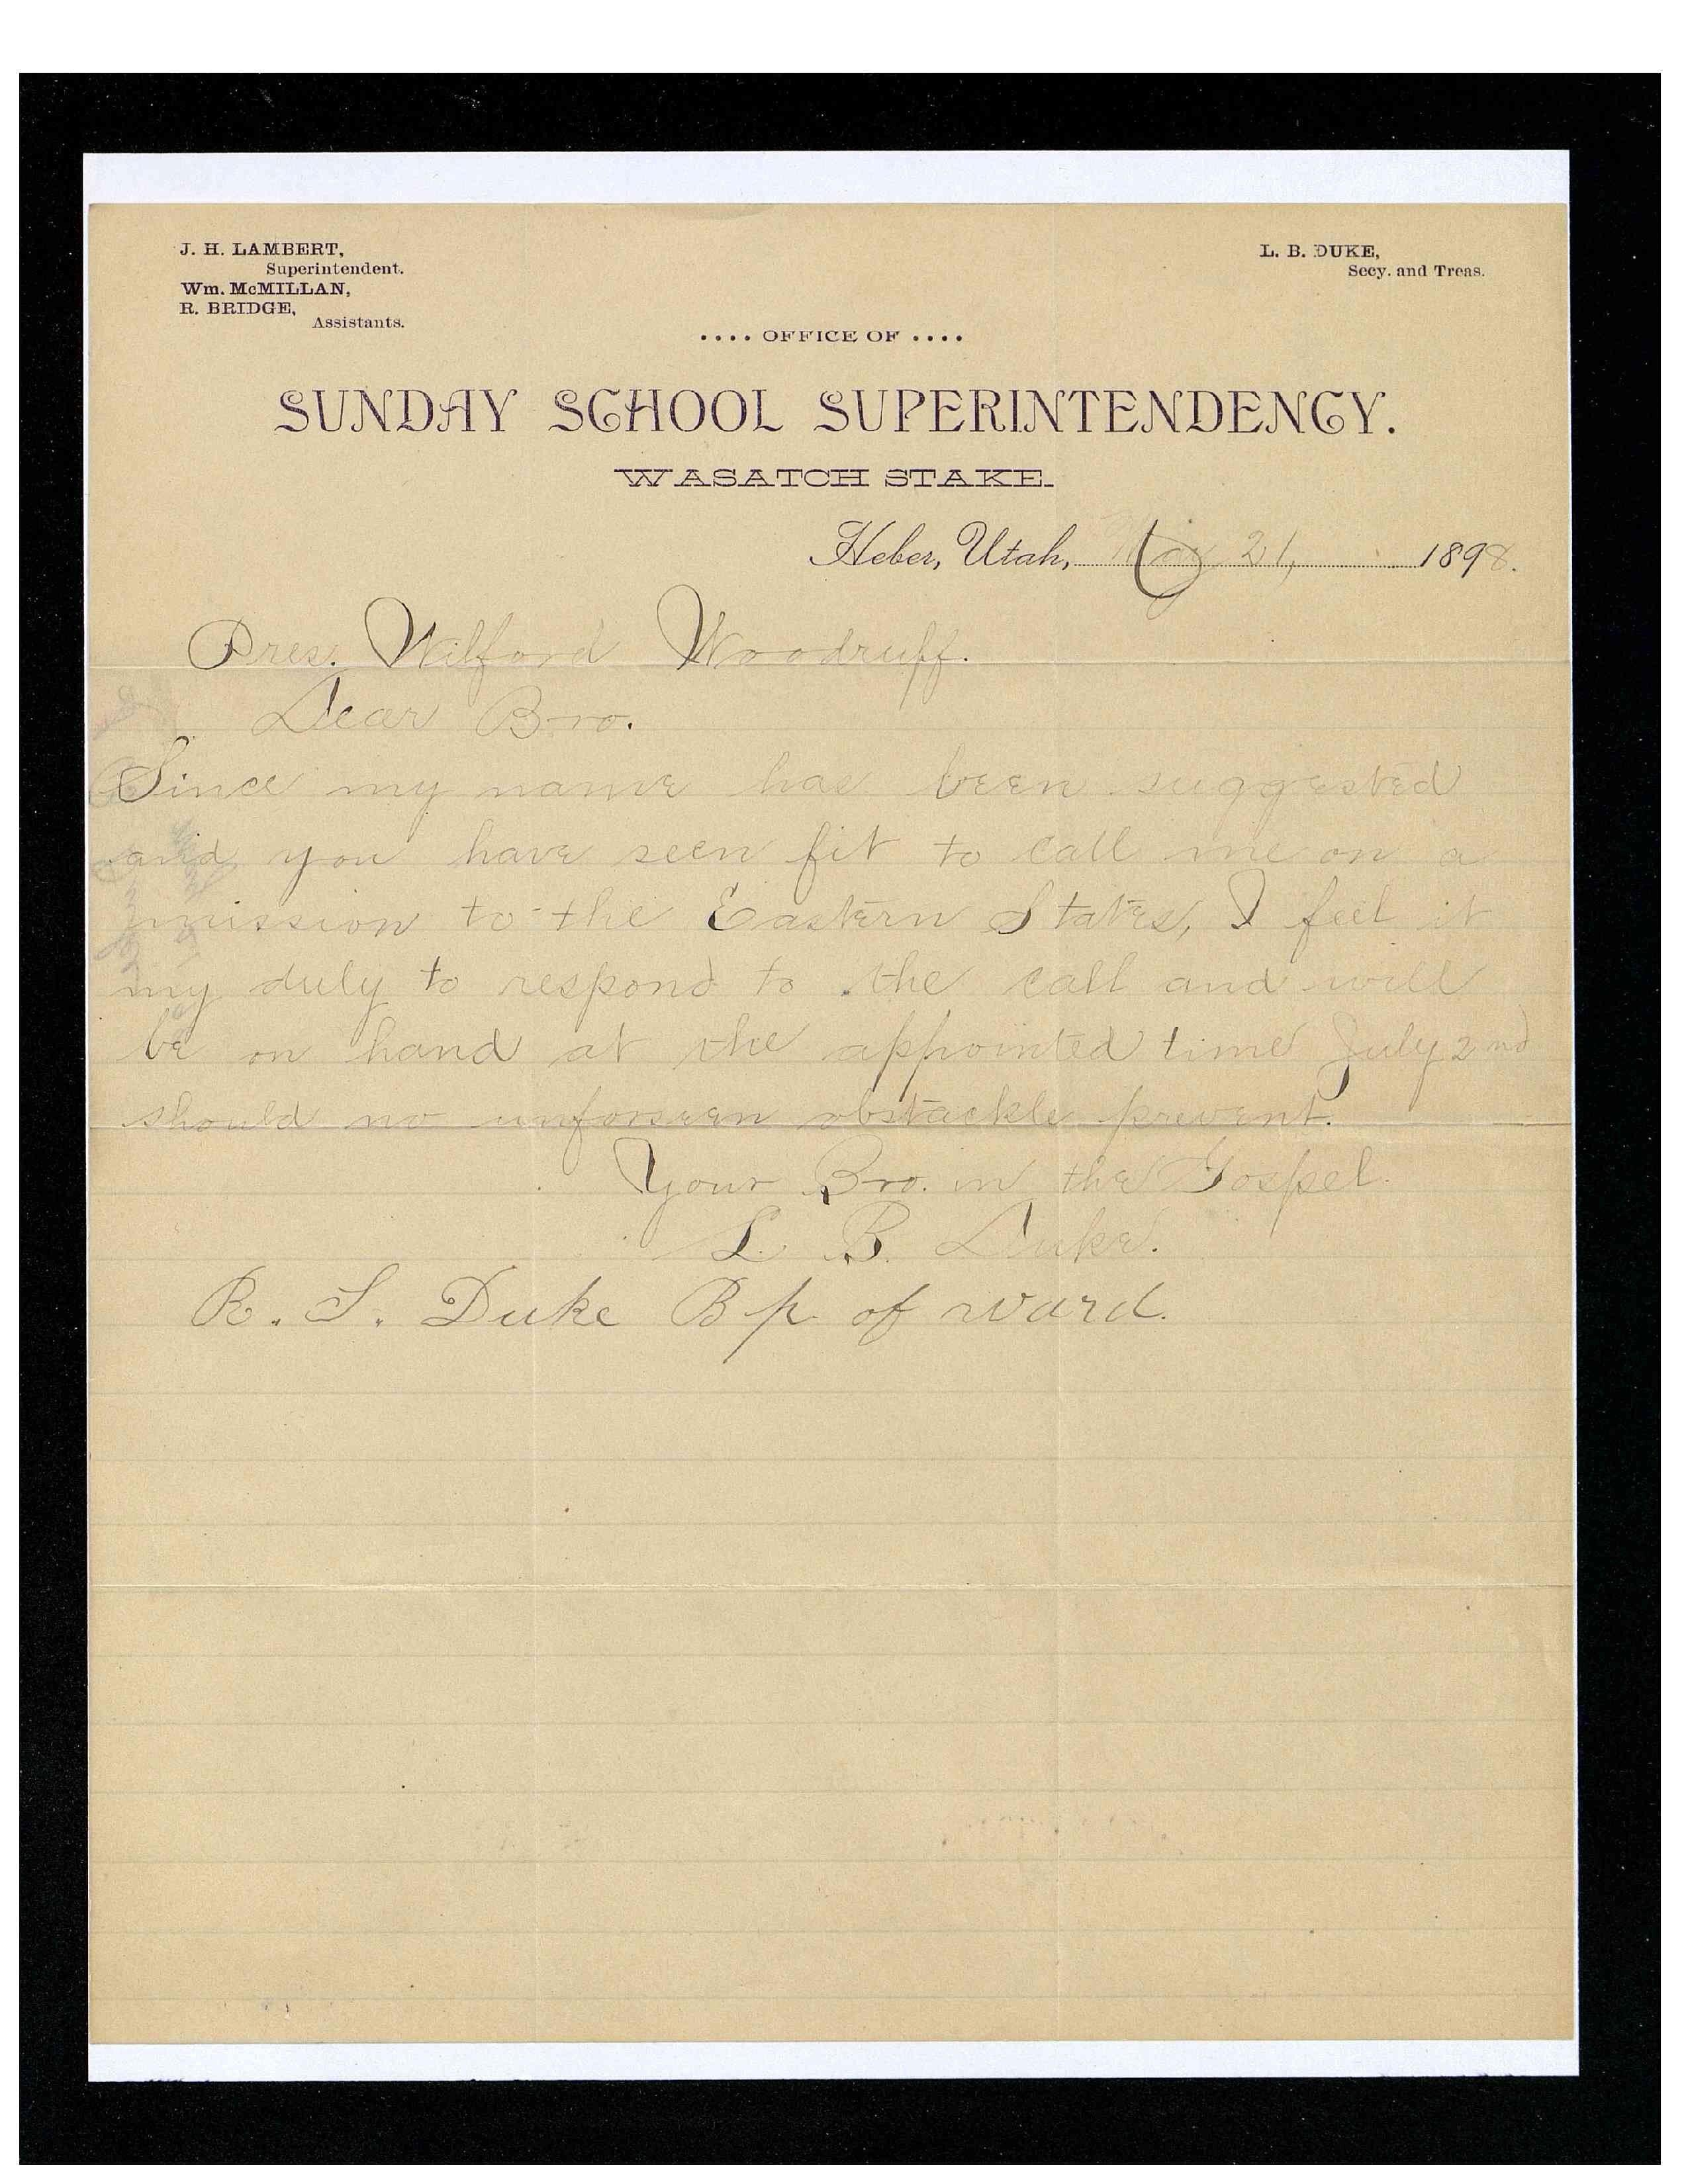 J. H. LAMBERT,
Superintendent.
Wm. McMILLAN,
R. BRIDGE,
Assistants.
L. B. DUKE,
Secy. and Treas.
.... OFFICE OF ....
SUNDAY SCHOOL SUPERINTENDENCY.
WASATCH STAKE.
Heber, Utah, May 21, 1898.
Pres. Wilford Woodruff.
Dear Bro.
Since my name has been suggested
and you have seen fit to call me on a
mission to the Eastern States, I feel it
my duly to respond to the call and will
be on hand at the appointed time July 2nd
should no unforseen obstackle prevent.
Your Bro. in the Gospel.
L. B. Duke.
R. S. Duke Bp of ward.